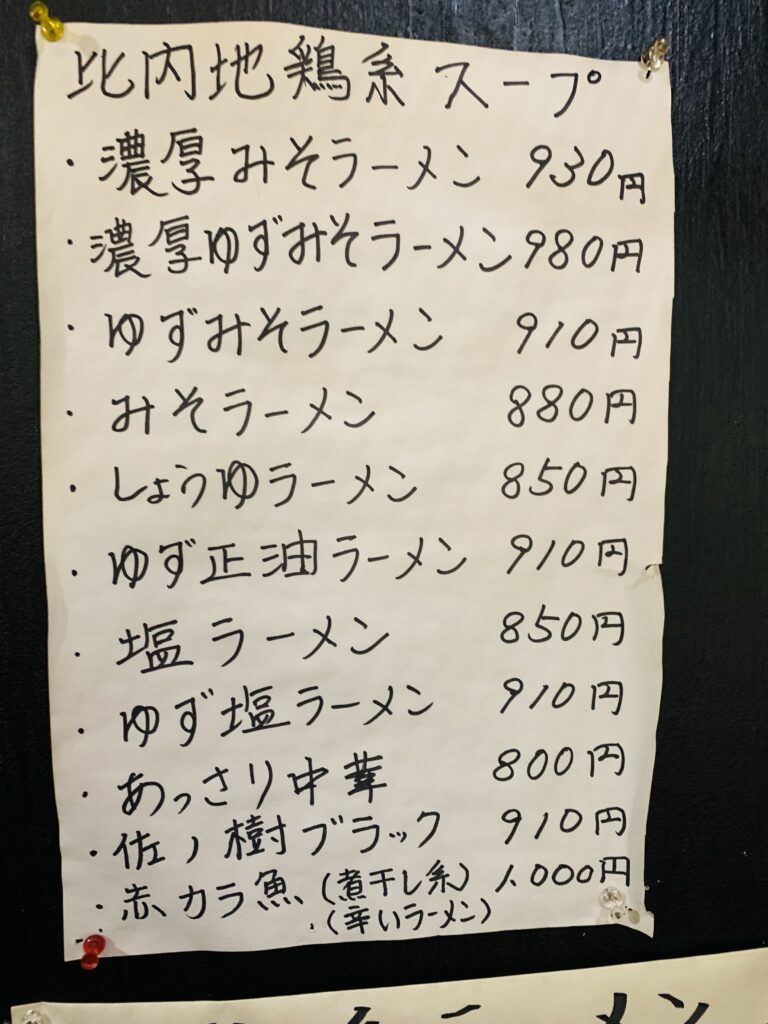 比内地鶏系スープ
・濃厚みそラーメン 930円
・濃厚ゆずみそラーメン 980円
・ゆずみそラーメン 910円
・みそラーメン 880円
・しょうゆラーメン 850円
・ゆず正油ラーメン 910円
・塩ラーメン 850円
・ゆず塩ラーメン 910円
・あっさり中華 800円
・佐ノ樹ブラック 910円
・赤カラ魚(煮干し系) 1,000円
・(辛いラーメン)
ラーメン